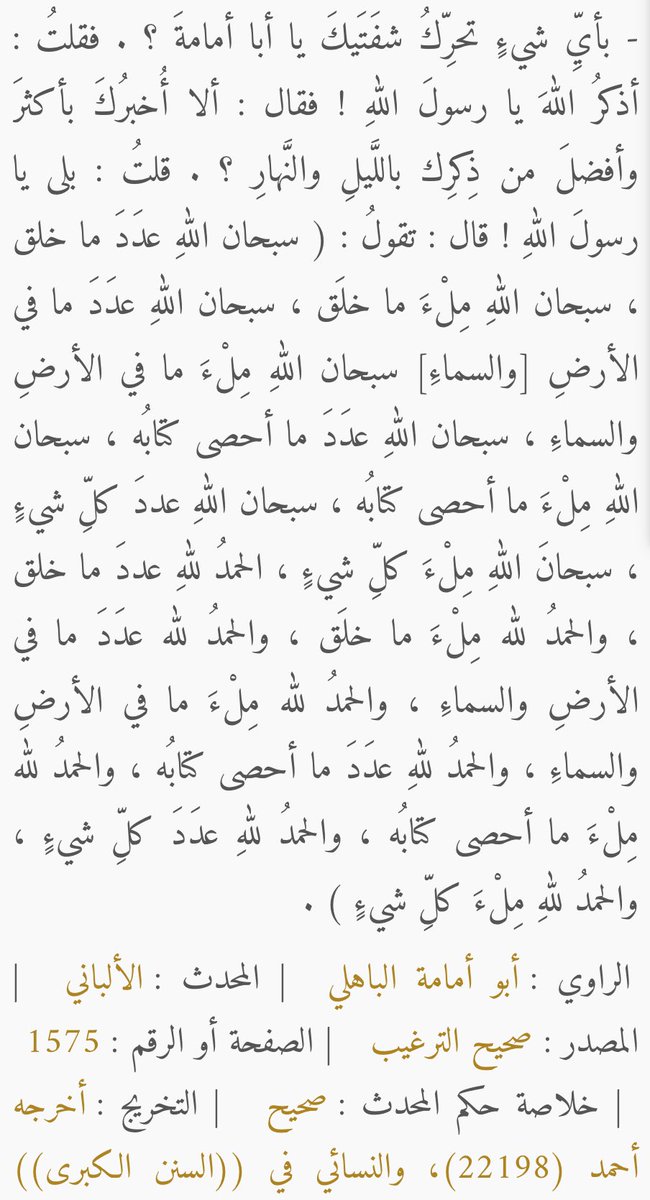 - بأيِّ شيءٍ تحرِّكُ شفَتَيكَ يا أبا أمامةَ ؟ . فقلتُ :
أذكرُ اللهَ يا رسولَ اللهِ ! فقال : ألا أُخبرُكَ بأكثرَ
وأفضلَ من ذِكرِك باللَّيلِ والنَّهارِ ؟ . قلتُ : بلى يا
رسولَ اللهِ ! قال : تقولُ : ( سبحان اللهِ عدَدَ ما خلق
، سبحان اللهِ مِلْءَ ما خلَق ، سبحان اللهِ عدَدَ ما في
الأرضِ [والسماءِ] سبحان اللهِ مِلْءَ ما في الأرضِ
والسماءِ ، سبحان اللهِ عدَدَ ما أحصى كتابُه ، سبحان
اللهِ مِلْءَ ما أحصى كتابُه ، سبحان اللهِ عددَ كلِّ شيءٍ
، سبحانَ اللهِ مِلْءَ كلِّ شيءٍ ، الحمدُ للهِ عددَ ما خلق
، والحمدُ لله مِلْءَ ما خلَق ، والحمدُ لله عدَدَ ما في
الأرضِ والسماءِ ، والحمدُ لله مِلْءَ ما في الأرضِ
والسماءِ ، والحمدُ للهِ عدَدَ ما أحصى كتابُه ، والحمدُ لله
مِلْءَ ما أحصى كتابُه ، والحمدُ للهِ عدَدَ كلِّ شيءٍ ،
والحمدُ للهِ مِلْءَ كلِّ شيءٍ ) .
الراوي : أبو أمامة الباهلي | المحدث : الألباني |
المصدر : صحيح الترغيب | الصفحة أو الرقم : 1575
| خلاصة حكم المحدث : صحيح | التخريج : أخرجه
أحمد (22198)، والنسائي في ((السنن الكبرى))